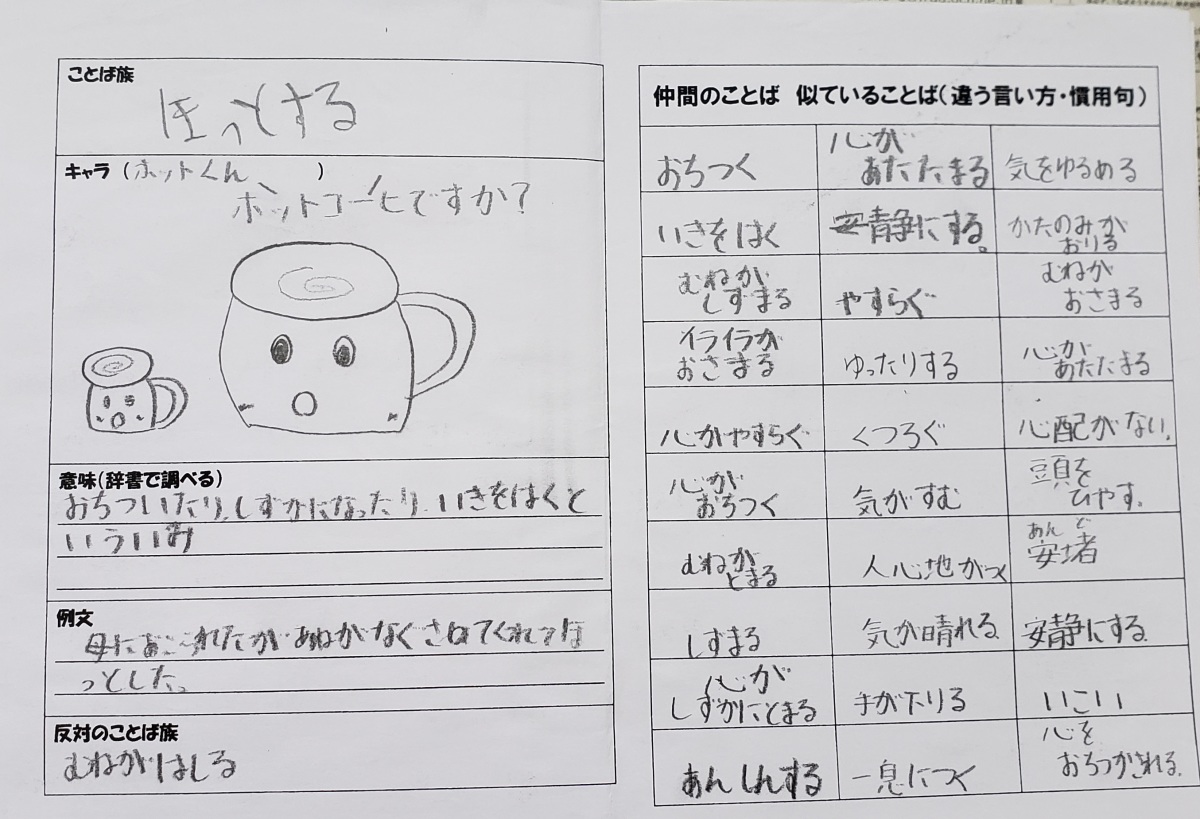 ことば族
ほっとする
キャラ(ホットくん )
ホットコーヒーですか?
意味(辞書で調べる)
おちついたり、しずかになったり、いきをはくと
いういみ
例文
母におこられたがあねがなぐさめてくれてほ
っとした。
反対のことば族
むねがはしる
仲間のことば 似ていることば(違う言い方・慣用句)
おちつく
心が
あたたまる
気をゆるめる
いきをはく
安静にする。
かたのみが
おりる
むねが
しずまる
やすらぐ
むねが
おさまる
イライラが
おさまる
ゆったりする
心が
あたたまる
心がやすらぐ
くつろぐ
心配がない。
心が
おちつく
気がすむ
頭を
ひやす。
むねが
とまる
人心地がつく
あんど
安堵
しずまる
気が晴れる
安静にする
心が
しずかにとまる
手が下りる
いこい
あんしんする
一息につく
心を
おちつかされる。